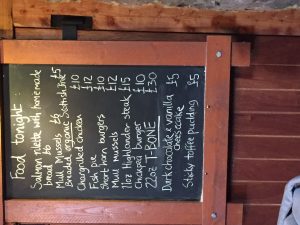 Food tonight:
Salmon rillette with homemade bread £6
Mull Mussels £6
Breaded organic Scottish brie £5
Chargrilled chicken £10
Fish pie £12
Short horn burgers £10
Mull mussels £12
11oz Highlander steak £15
Chickpea burger £10
22oz T-BONE £30
Dark chocolate & vanilla cheesecake £5
Sticky toffee pudding £5